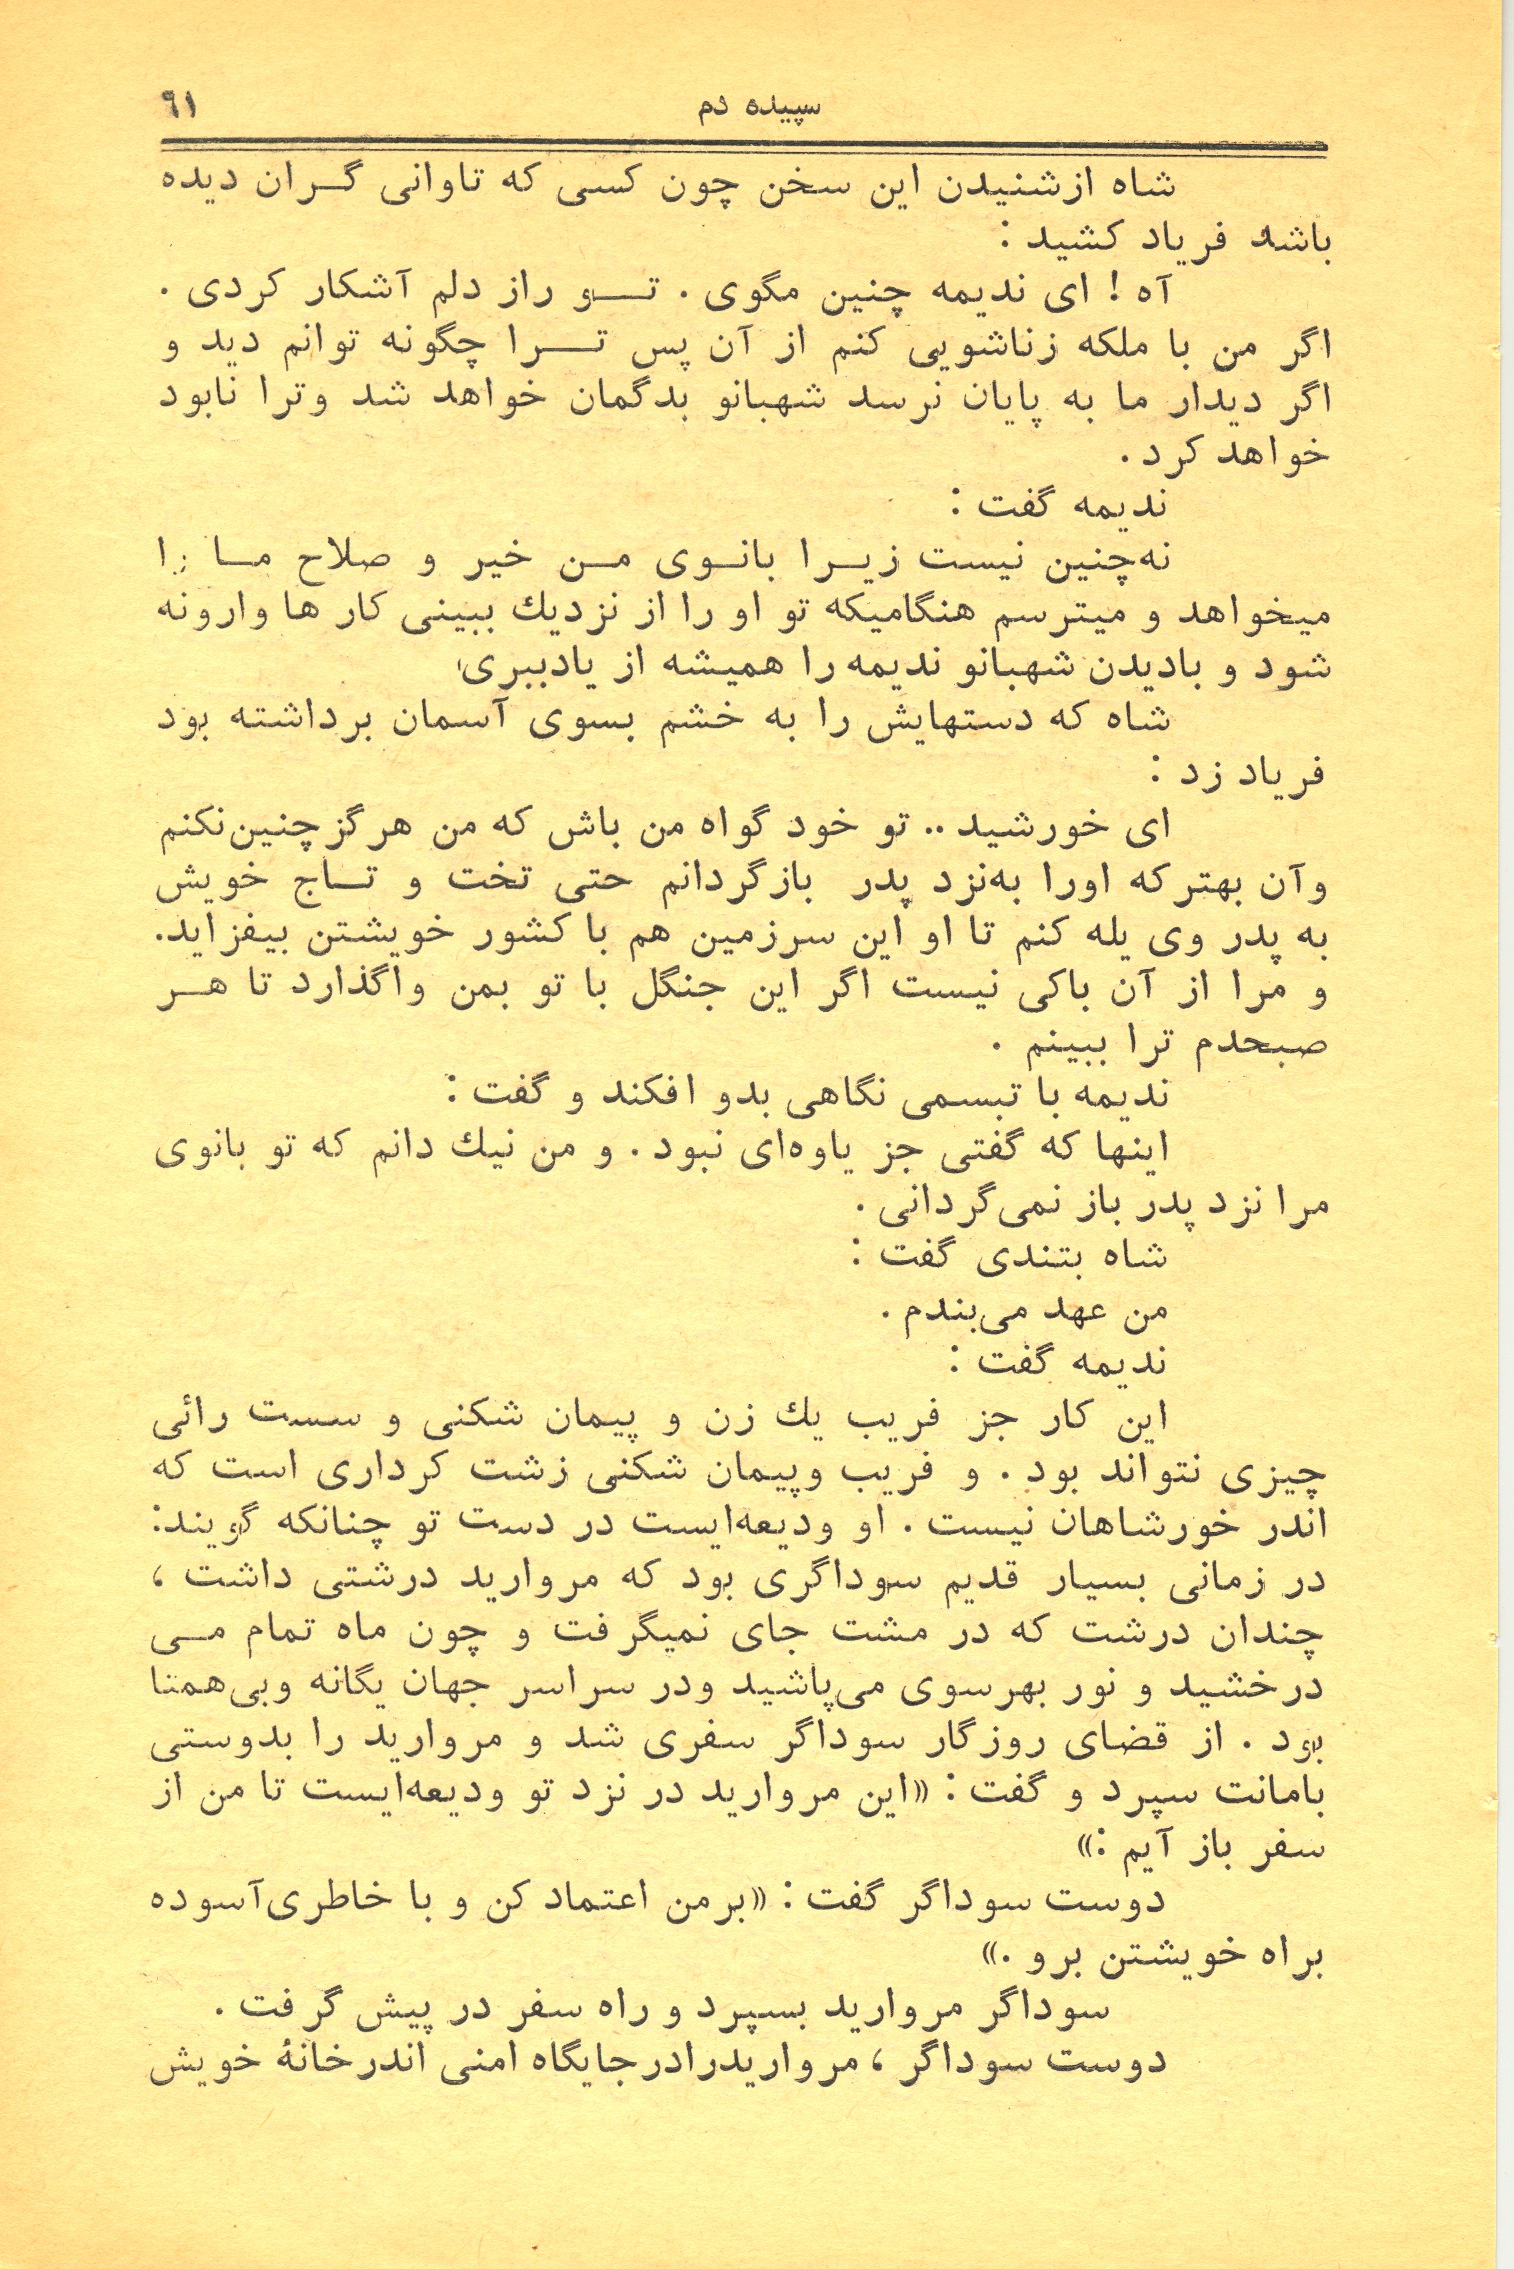 سپیده دم ۶۱
شاه ازشنیدن این سخن چون کسی که تاوانی گــران دیده
باشد فریاد کشید :
آه ! ای ندیمه چنین مگوی . تــــو راز دلم آشکار کردی .
اگر من با ملکه زناشویی کنم از آن پس تــــرا چگونه توانم دید و
اگر دیدار ما به پایان نرسد شهبانو بدگمان خواهد شد وترا نابود
خواهد کرد .
ندیمه گفت :
نه‌چنین نیست زیــرا بانــوی مــن خیر و صلاح مــا را
میخواهد و میترسم هنگامیکه تو او را از نزدیك ببینی کار ها وارونه
شود و بادیدن شهبانو ندیمه را همیشه از یادببری
شاه که دستهایش را به خشم بسوی آسمان برداشته بود
فریاد زد :
ای خورشید .. تو خود گواه من باش که من هرگز چنین‌نکنم
وآن بهترکه اورا به‌نزد پدر بازگردانم حتی تخت و تــاج خویش
به پدر وی یله کنم تا او این سرزمین هم با کشور خویشتن بیفزاید.
و مرا از آن باکی نیست اگر این جنگل با تو بمن واگذارد تا هــر
صبحدم ترا ببینم .
ندیمه با تبسمی نگاهی بدو افکند و گفت :
اینها که گفتی جز یاوه‌ای نبود . و من نیك دانم که تو بانوی
مرا نزد پدر باز نمی‌گردانی .
شاه بتندی گفت :
من عهد می‌بندم .
ندیمه گفت :
این کار جز فریب یك زن و پیمان شکنی و سست رائی
چیزی نتواند بود . و فریب وپیمان شکنی زشت کرداری است که
اندر خورشاهان نیست . او ودیعه‌ایست در دست تو چنانکه گویند:
در زمانی بسیار قدیم سوداگری بود که مروارید درشتی داشت ،
چندان درشت که در مشت جای نمیگرفت و چون ماه تمام مــی
درخشید و نور بهرسوی می‌پاشید ودر سراسر جهان یگانه وبی‌همتا
بود . از قضای روزگار سوداگر سفری شد و مروارید را بدوستی
بامانت سپرد و گفت : «این مروارید در نزد تو ودیعه‌ایست تا من از
سفر باز آیم :»
دوست سوداگر گفت : «برمن اعتماد کن و با خاطری‌آسوده
براه خویشتن برو .»
سوداگر مروارید بسپرد و راه سفر در پیش گرفت .
دوست سوداگر ، مرواریدرادرجایگاه امنی اندرخانهٔ خویش